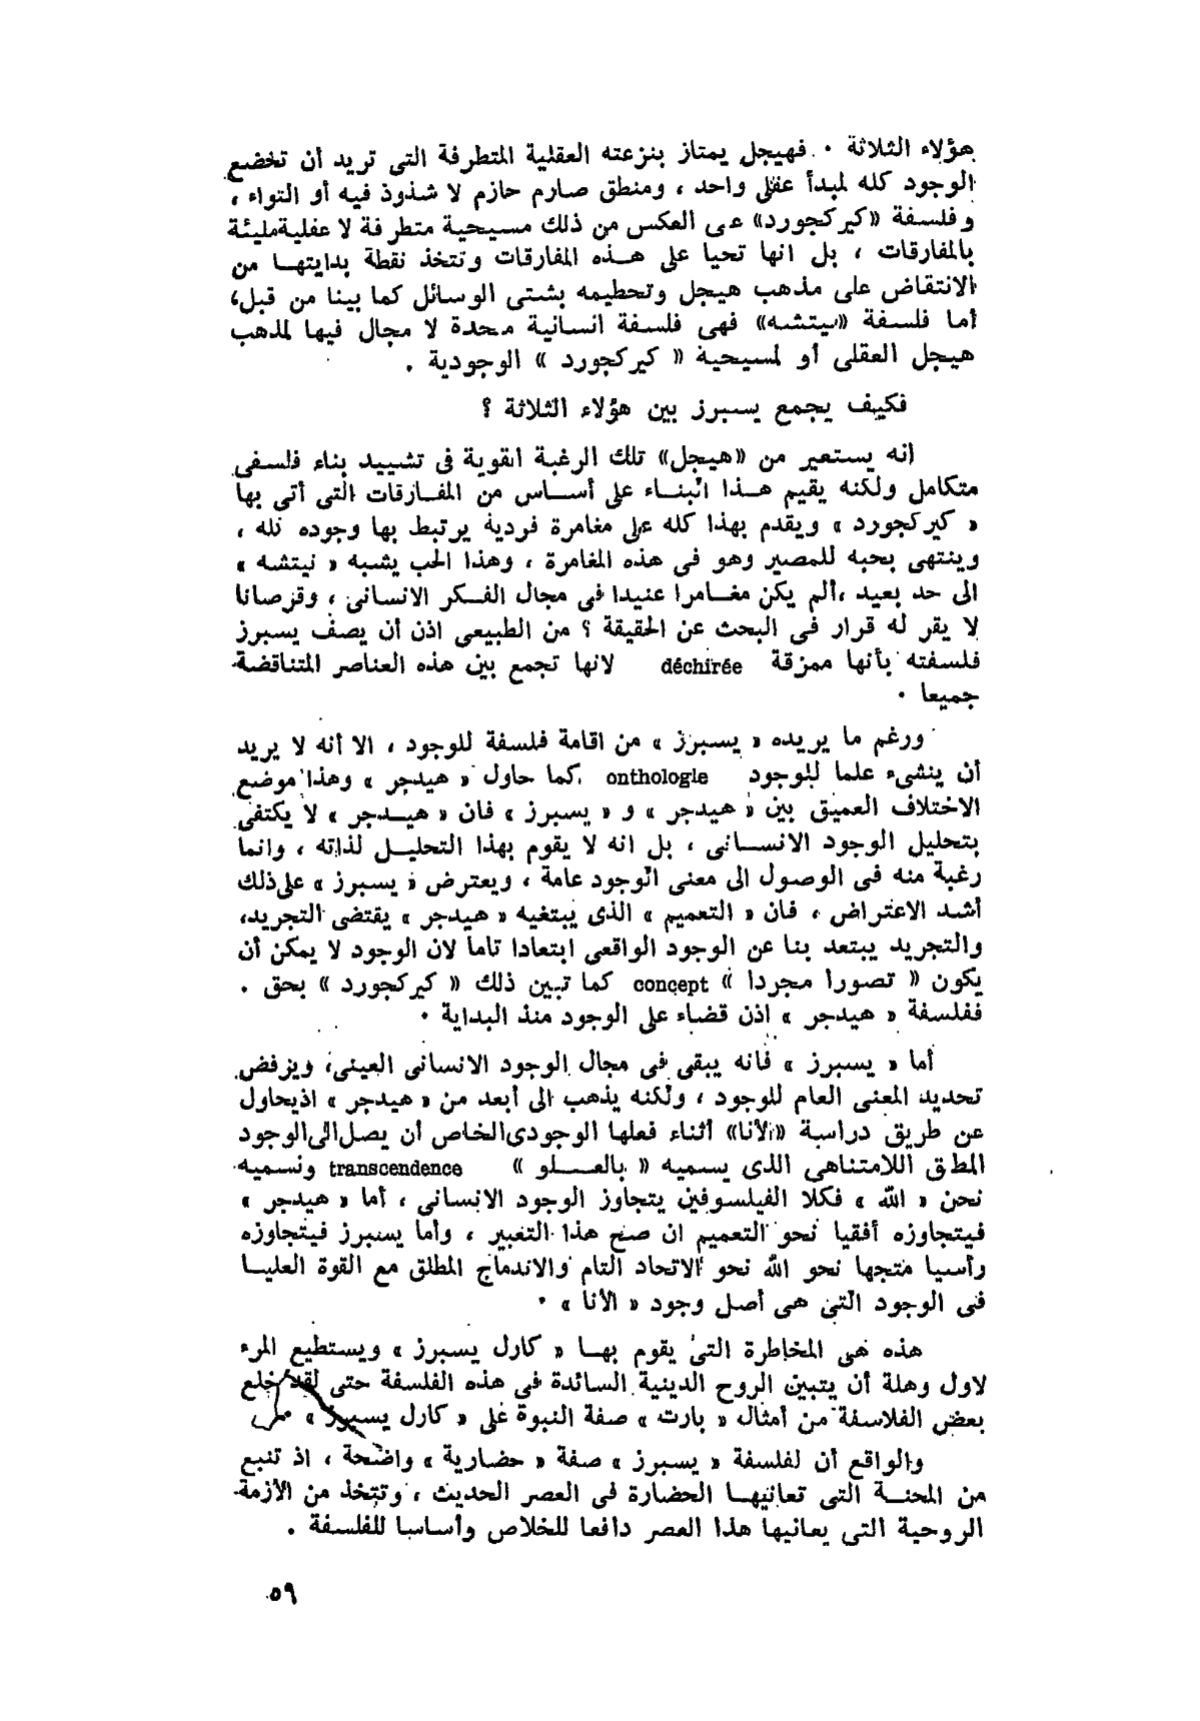 هؤلاء الثلاثة . فهيجل يمتاز بنزعته العقلية المتطرفة التى تريد أن تخضع
الوجود كله لمبدأ عقلى واحد ، ومنطق صارم حازم لا شذوذ فيه أو التواء ،
وفلسفة «كيركجورد» على العكس من ذلك مسيحية متطرفة لا عقلية مليئة
بالمفارقات ، بل انها تحيا على هذه المفارقات وتتخذ نقطة بدايتها من
الانتقاض على مذهب هيجل وتحطيمه بشتى الوسائل كما بينا من قبل،
أما فلسفة «نيتشه» فهى فلسفة انسانية ملحدة لا مجال فيها لمذهب
هيجل العقلى أو لمسيحية « كيركجورد » الوجودية .
فكيف يجمع يسبرز بين هؤلاء الثلاثة ؟
انه يستعير من «هيجل» تلك الرغبة القوية فى تشييد بناء فلسفى
متكامل ولكنه يقيم هذا البناء على أساس من المفارقات التى أتى بها
« كيركجورد » ويقدم بهذا كله على مغامرة فردية يرتبط بها وجوده كله ،
وينتهى بحبه للمصير وهو فى هذه المغامرة ، وهذا الحب يشبه « نيتشه »
الى حد بعيد ،ألم يكن مغامرا عنيدا فى مجال الفكر الانسانى ، وقرصانا
لا يقر له قرار فى البحث عن الحقيقة ؟ من الطبيعى اذن أن يصف يسبرز
فلسفته بأنها ممزقة déchirée لانها تجمع بين هذه العناصر المتناقضة
جميعا .
ورغم ما يريده « يسبرز » من اقامة فلسفة للوجود ، الا أنه لا يريد
أن ينشىء علما للوجود onthologie كما حاول « هيدجر » وهذا موضع
الاختلاف العميق بين « هيدجر » و « يسبرز » فان « هيدجر » لا يكتفى
بتحليل الوجود الانسانى ، بل انه لا يقوم بهذا التحليل لذاته ، وانما
رغبة منه فى الوصول الى معنى الوجود عامة ، ويعترض « يسبرز » على ذلك
أشد الاعتراض ، فان « التعميم » الذى يبتغيه « هيدجر » يقتضى التجريد،
والتجريد يبتعد بنا عن الوجود الواقعى ابتعادا تاما لان الوجود لا يمكن أن
يكون « تصورا مجردا » concept كما تبين ذلك « كيركجورد » بحق .
ففلسفة « هيدجر » اذن قضاء على الوجود منذ البداية .
أما « يسبرز » فانه يبقى فى مجال الوجود الانسانى العينى، ويرفض
تحديد المعنى العام للوجود ، ولكنه يذهب الى أبعد من « هيدجر » اذيحاول
عن طريق دراسة «الأنا» أثناء فعلها الوجودى الخاص أن يصل الى الوجود
المطلق اللامتناهى الذى يسميه « بالعلو » transcendence ونسميه
نحن « الله » فكلا الفيلسوفين يتجاوز الوجود الانسانى ، أما « هيدجر »
فيتجاوزه أفقيا نحو التعميم ان صح هذا التعبير ، وأما يسبرز فيتجاوزه
رأسيا متجها نحو الله نحو الاتحاد التام والاندماج المطلق مع القوة العليا
فى الوجود التى هى أصل وجود « الأنا » .
هذه هى المخاطرة التى يقوم بها « كارل يسبرز » ويستطيع المرء
لاول وهلة أن يتبين الروح الدينية السائدة فى هذه الفلسفة حتى لقد خلع
بعض الفلاسفة من أمثال « بارت » صفة النبوة على « كارل يسبرز »
والواقع أن لفلسفة « يسبرز » صفة « حضارية » واضحة ، اذ تنبع
من المحنة التى تعانيها الحضارة فى العصر الحديث ، وتتخذ من الأزمة
الروحية التى يعانيها هذا العصر دافعا للخلاص وأساسا للفلسفة .
٥٩